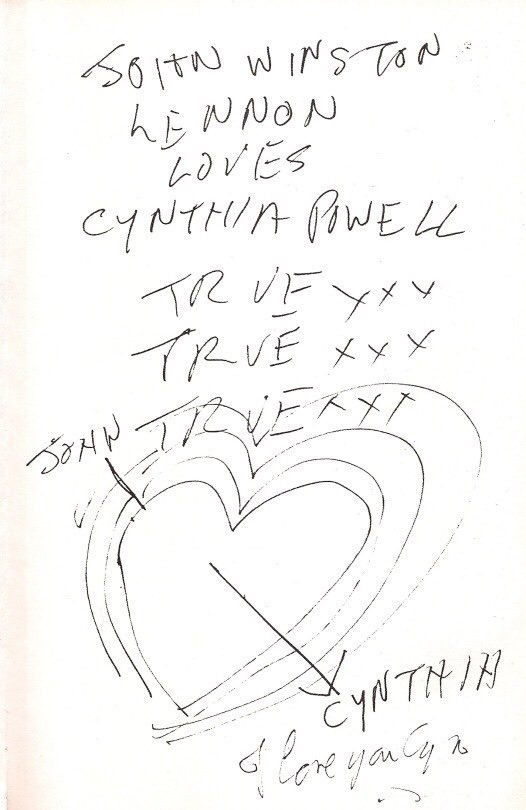 JOHN WINSTON
LENNON
LOVES
CYNTHIA POWELL
TRUE xxx
TRUE xxx
TRUE xxx
JOHN
CYNTHIA
I love you Cy x